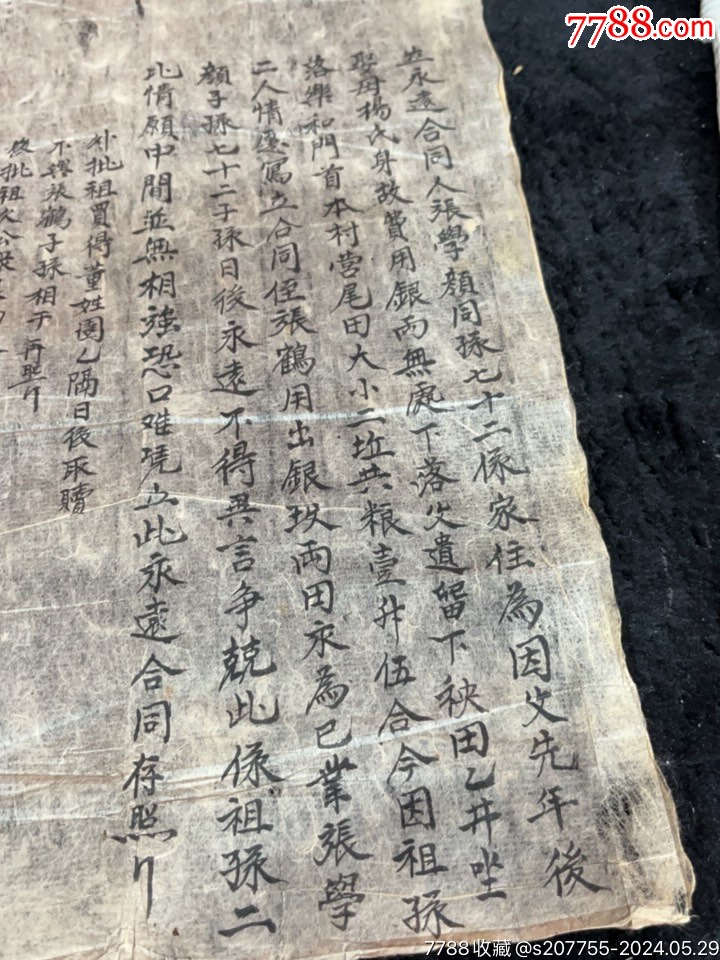 7788.com
立永遠合同人張學顏同孫七十二係家住為因父先年後
娶母楊氏身故費用銀両無處下落父遺留下秧田乙丼坐
落樂和門首本村营尾田大小二坵共粮壹升伍合今因祖孫
二人情愿寫立合同侄張鶴用出銀玖両田永為已業張學
顏子孫七十二子孫日後永遠不得異言争兢此係祖孫二
比情願中間並無相強恐口难凭立此永遠合同存照
外批祖買得董姓園乙隔日後取贖
不為張鶴子孫相干再照
後批祖父公
7788收藏@s207755-2024.05.29